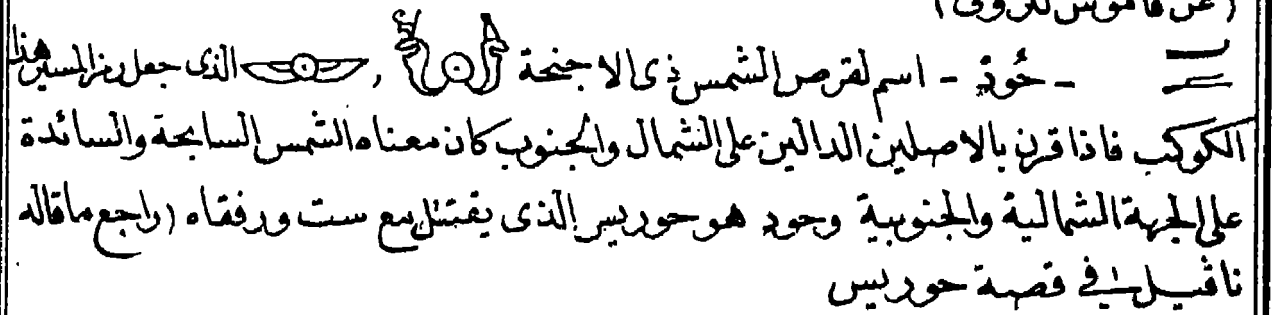 (عن قاموس لنزونى)
- حُود - اسم لقرص الشمس ذى الاجنحة , الذى جعل رمز المسير هذا
الكوكب فاذا قرن بالاصلين الدالين على الشمال والجنوب كان معناه الشمس السابحة والسائدة
على الجهة الشمالية والجنوبية وحود هو حوريس الذى يقتتل مع ست ورفقاه (راجع ماقاله
ناڤيل فى قصة حوريس